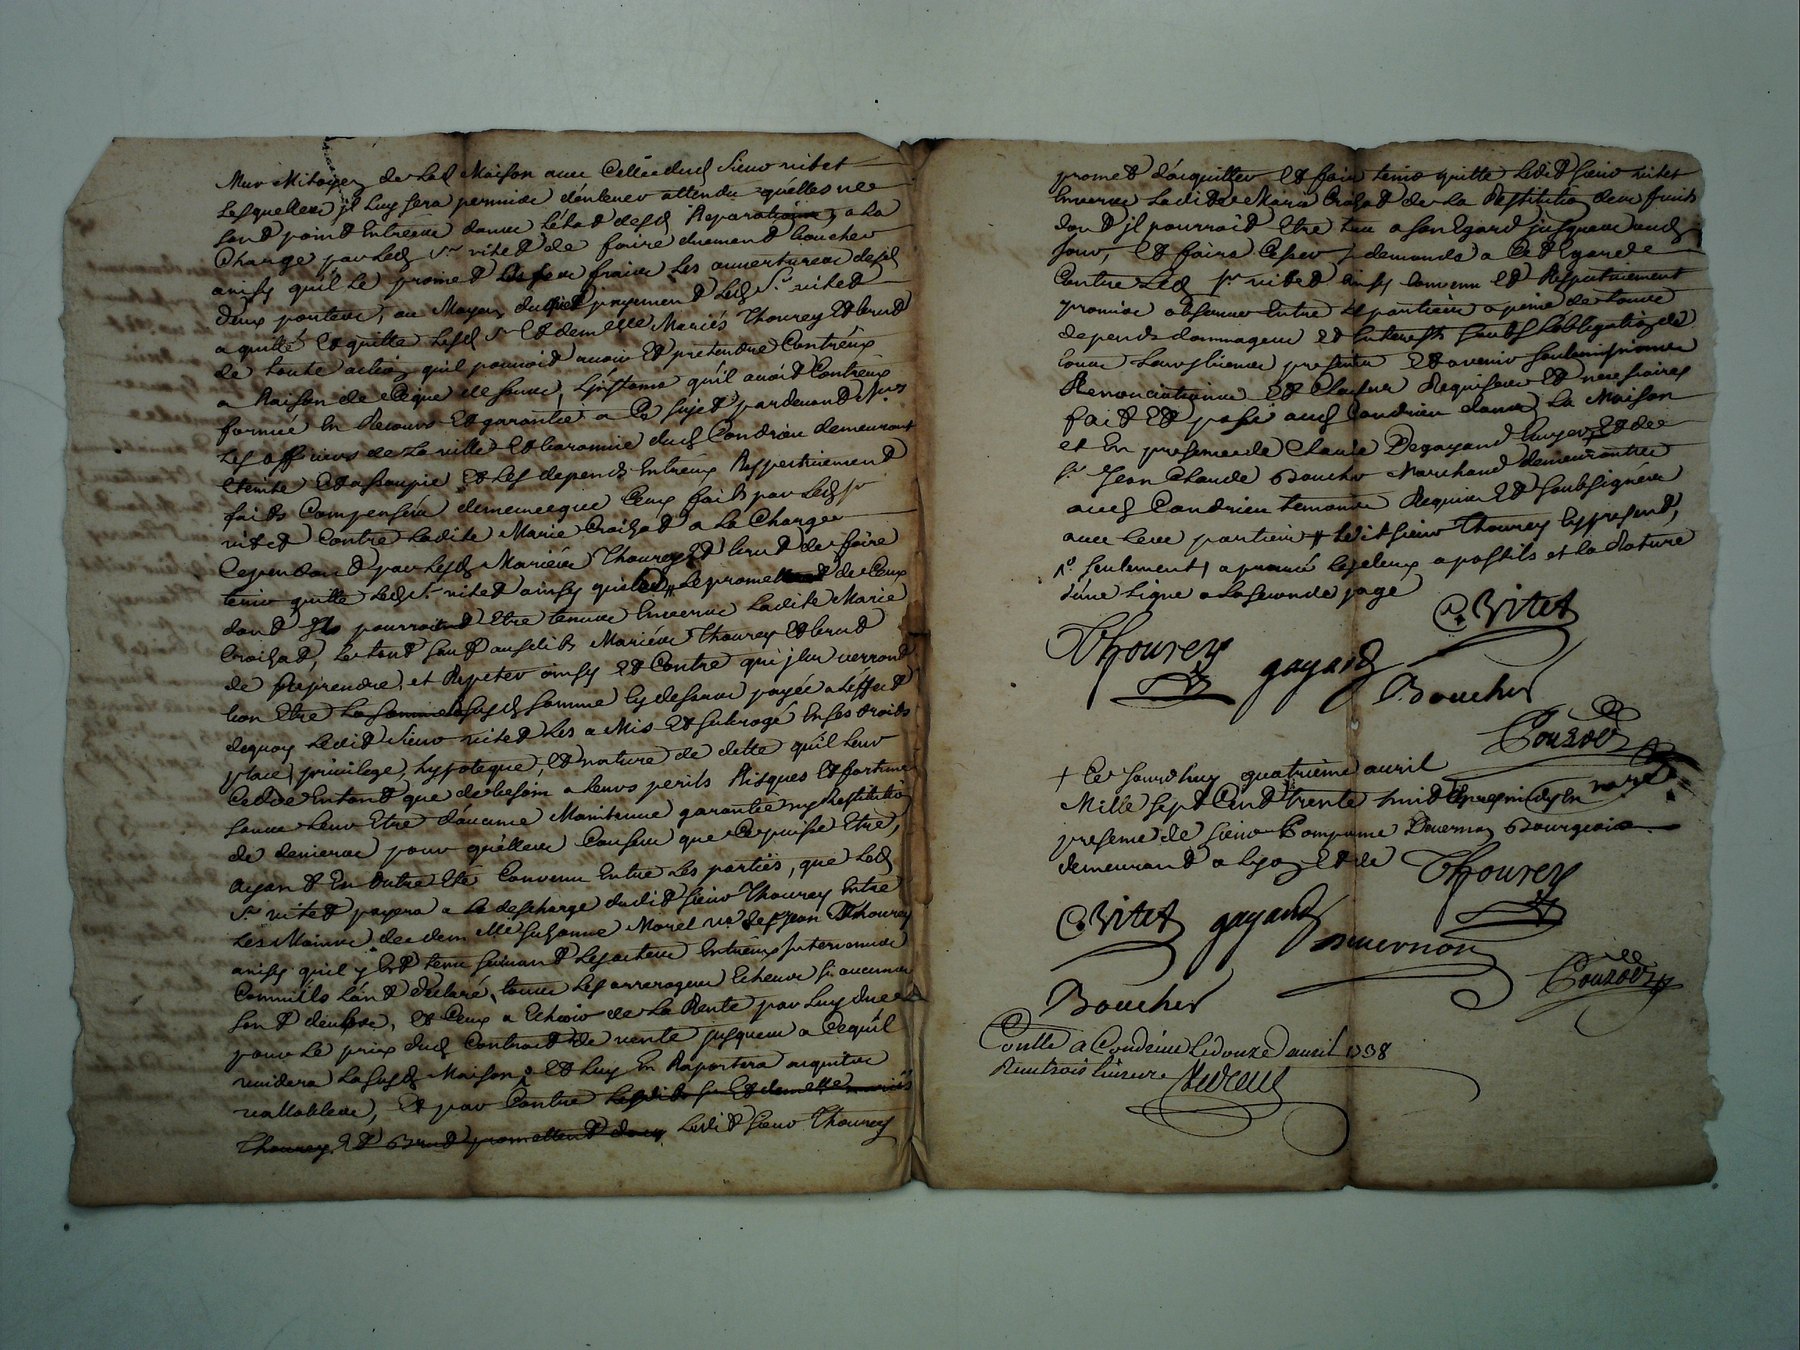 Mur Mitoyen de Lad Maison avec Celle dud Sieur vitet
Lesquelles jl Luy sera permis d'enlever attendu qu'elles ne
sont point Entrées dans l'état desd Reparations, a La
Charge par Led Sr vitet de faire duement boucher
ainsy qu'il Le promet a ses frais Les ouvertures desd
deux portes, au Moyen duquel payement Led Sr vitet
a quitté Et quitte Lesd Sr Et demelle Mariés Thourey Et brut
de toute action qu'il pouvoit avoir Et pretendre Contr'eux
a Raison de Ce que dessus, L'jnstance qu'il avoit Contr'eux
formée En Recours Et garantie a Ce sujet pardevant Mrs
Les officiers de La ville Et baronnie dud Condrieu demeurant
Eteinte Et assoupie Et Les depends Entr'eux Respectivement
faits Compensés dememe que Ceux faits par Led Sr
vitet Contre Ladite Marie Croizat a La Charge
Cependant par Lesd Mariés Thourey Et brut de faire
tenir quitte Led Sr vitet ainsy qu'ils Le promettent de Ceux
dont jls pourroient Etre tenus Envers Ladite Marie
Croizat, Le tout sauf ausdits Mariés Thourey Et brut
de Reprendre et Repeter ainsy Et Contre qui jls verront
bon Etre La susd somme Cy dessus payée a L'effet
dequoy Ledit Sieur vitet Les a Mis Et subrogé En ses droits
place, privilege, hypoteque, Et nature de dette qu'il Leur
Cede Entant que de besoin a Leurs perils Risques Et fortunes
sans Leur Etre d'aucune Maintenue garantie ny Restitution
de deniers pour quelle Cause que Ce puisse Etre,
ayant En outre Eté Convenu Entre Les parties, que Led
Sr vitet payera a La descharge dudit Sieur Thourey Entre
Les Mains de demlle Suzanne Morel ve de Sr Jean Thourey
ainsy qu'il y Est tenu suivant Les actes Entr'eux jntervenus
Comm'ils L'ont declaré, tous Les arrerages Echeus si aucuns
sont deubs, Et Ceux a Echoir de La Rente par Luy due
pour Le prix dud Contract de vente jusques a Ce qu'il
vuidera La susd Maison, Et Luy En Raportera acquits
vallables, Et par Contre Lesdits Sr Et demelle mariés
Thourey Et Brut promettent d'acq Ledit Sieur Thourey
promet d'acquitter Et faire tenir quitte Ledit Sieur vitet
Envers Ladite Marie Croizat de La Restitution des fruits
dont jl pourroit Etre tenu a son Egard jusques aud
jour, Et faire Cesser sa demande a Cet Egard
Contre Led Sr vitet ainsy Convenu Et Respectivement
promis observer Entre Les parties a peine de tous
depends dommages Et jnterests soubs L'obligation de
tous Leurs biens presents Et avenir soubmissions
Renonciations Et Clauses Requises Et necessaires
fait Et passé aud Condrieu dans La Maison
et En presence de Claude Degayand Et de
Sr Jean Claude Boucher Marchand demeurants
aud Condrieu temoins Requis Et soubsignés
avec Les parties + Ledit Sieur Thourey
seulement a aprouvé Les deux apostils et la Rature
d'une Ligne a La seconde page
C. Vitet
Thourey gayand
Boucher
Couzon
+ Ce jourd'huy quatrieme avril
Mille sept Cent trente huit apresmidy En
presence de Sieur Duvernay Bourgeois
demeurant a Lyon Et de
Thourey
C. Vitet gayand
Duvernon
Boucher
Couzon
Contlé a Condrieu Le douze avril 1738
Receu trois Livres